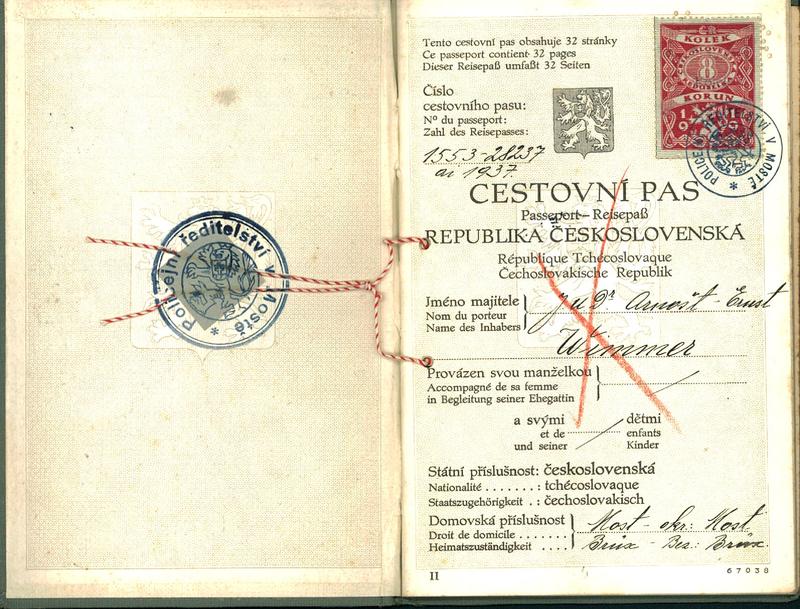 Policejní ředitelství v Mostě *
Tento cestovní pas obsahuje 32 stránky
Ce passeport contient 32 pages
Dieser Reisepaß umfaßt 32 Seiten
ČR
KOLEK
ČESKOSLOVENSKÁ
8
KORUN
Číslo
cestovního pasu:
Nº du passeport:
Zahl des Reisepasses:
POLICEJNÍ ŘEDITELSTVÍ V MOSTĚ *
1553-28237
ai 1937.
CESTOVNÍ PAS
Passeport – Reisepaß
REPUBLIKA ČESKOSLOVENSKÁ
République Tchécoslovaque
Čechoslovakische Republik
Jméno majitele
Nom du porteur
Name des Inhabers
JuDr Arnošt - Ernst
Wimmer
Provázen svou manželkou
Accompagné de sa femme
in Begleitung seiner Ehegattin
a svými dětmi
et de enfants
und seiner Kinder
Státní příslušnost: československá
Nationalité . . . . . . . : tchécoslovaque
Staatszugehörigkeit . : čechoslovakisch
Domovská příslušnost
Droit de domicile . . . . .
Heimatszuständigkeit . . . .
Most - okr: Most.
Brüx - Bez.: Brüx.
II
67038